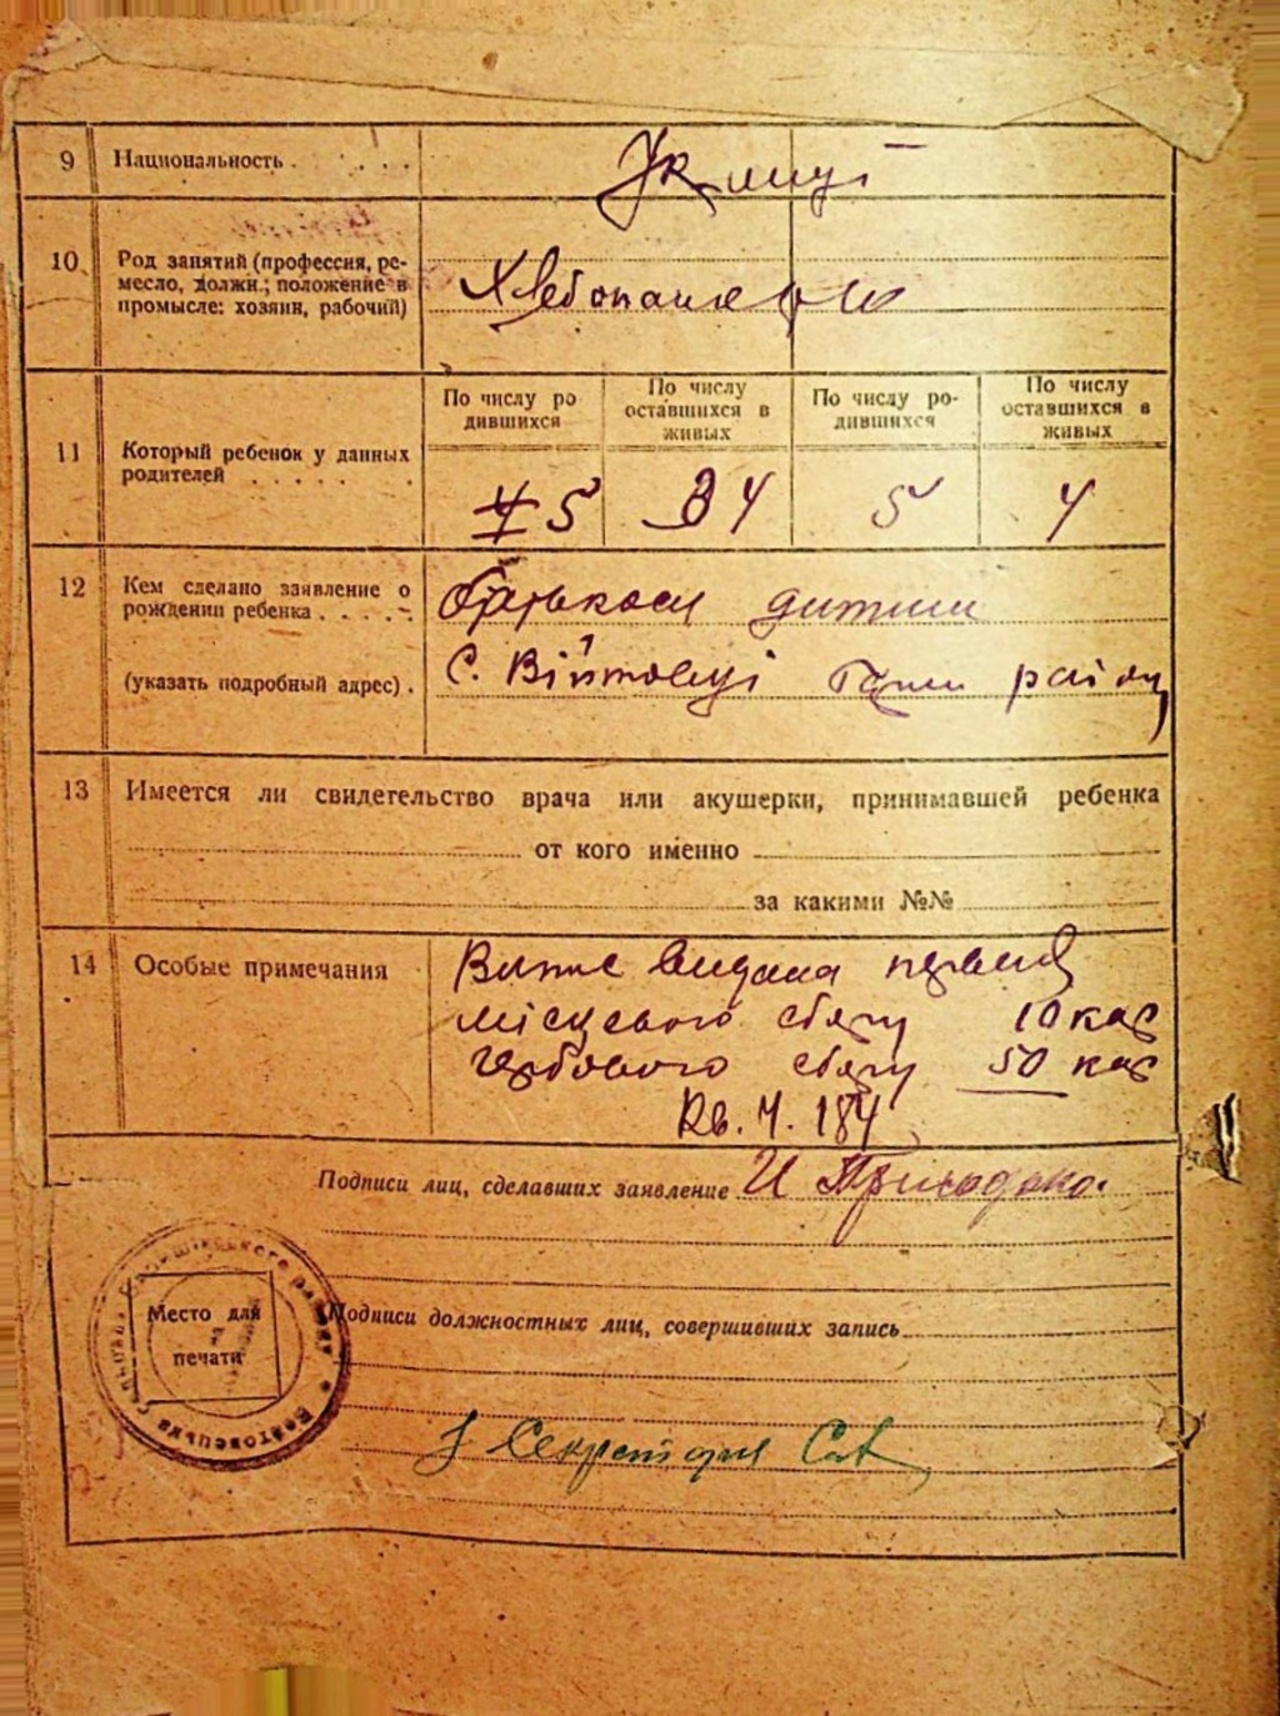 9 Национальность . . . . .
10 Род занятий (профессия, ре-
месло, должн.; положение в
промысле: хозяин, рабочий)
По числу ро
дившихся
По числу
оставшихся в
живых
По числу ро-
дившихся
По числу
оставшихся в
живых
11 Который ребенок у данных
родителей . . . . . .
4 5 3 4 5 4
12 Кем сделано заявление о
рождении ребенка . . . . .
(указать подробный адрес) .
батьком дитини
С. Війтовці району
13 Имеется ли свидетельство врача или акушерки, принимавшей ребенка
от кого именно
за какими №№
14 Особые примечания
видана
місцевого збору 10 коп
гербового збору 50 коп
Кв. Ч. 184
Подписи лиц, сделавших заявление И Приходько.
Место для
печати
Подписи должностных лиц, совершивших запись
Секретаря